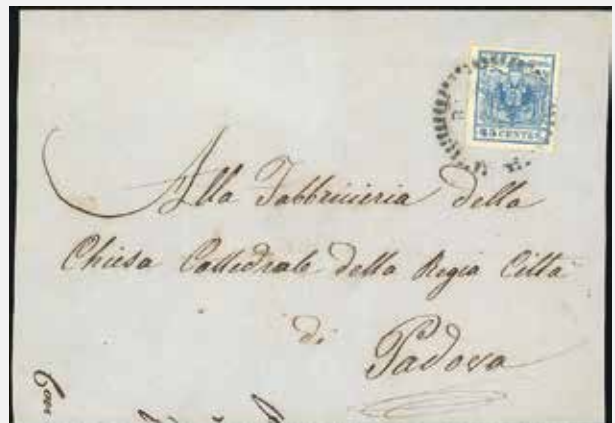 45 CENTES
Alla Fabbricieria della
Chiesa Cattedrale della Regia Città
di
Padova